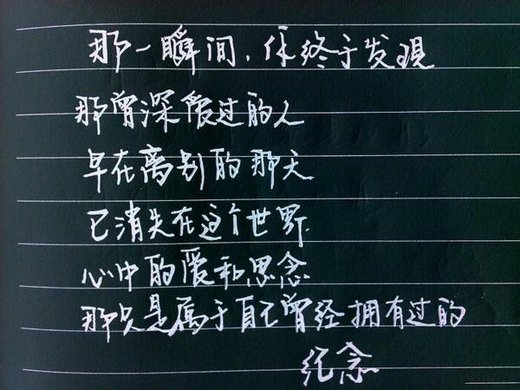 那一瞬间，你终于发现
那曾深爱过的人
早在离别的那天
已消失在这个世界
心中的爱和思念
都只是属于自己曾经拥有过的
纪念